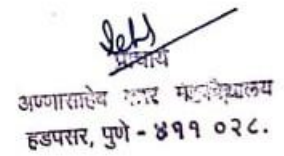 प्राचार्य
अण्णासाहेब मगर महाविद्यालय
हडपसर, पुणे - ४११ ०२८.